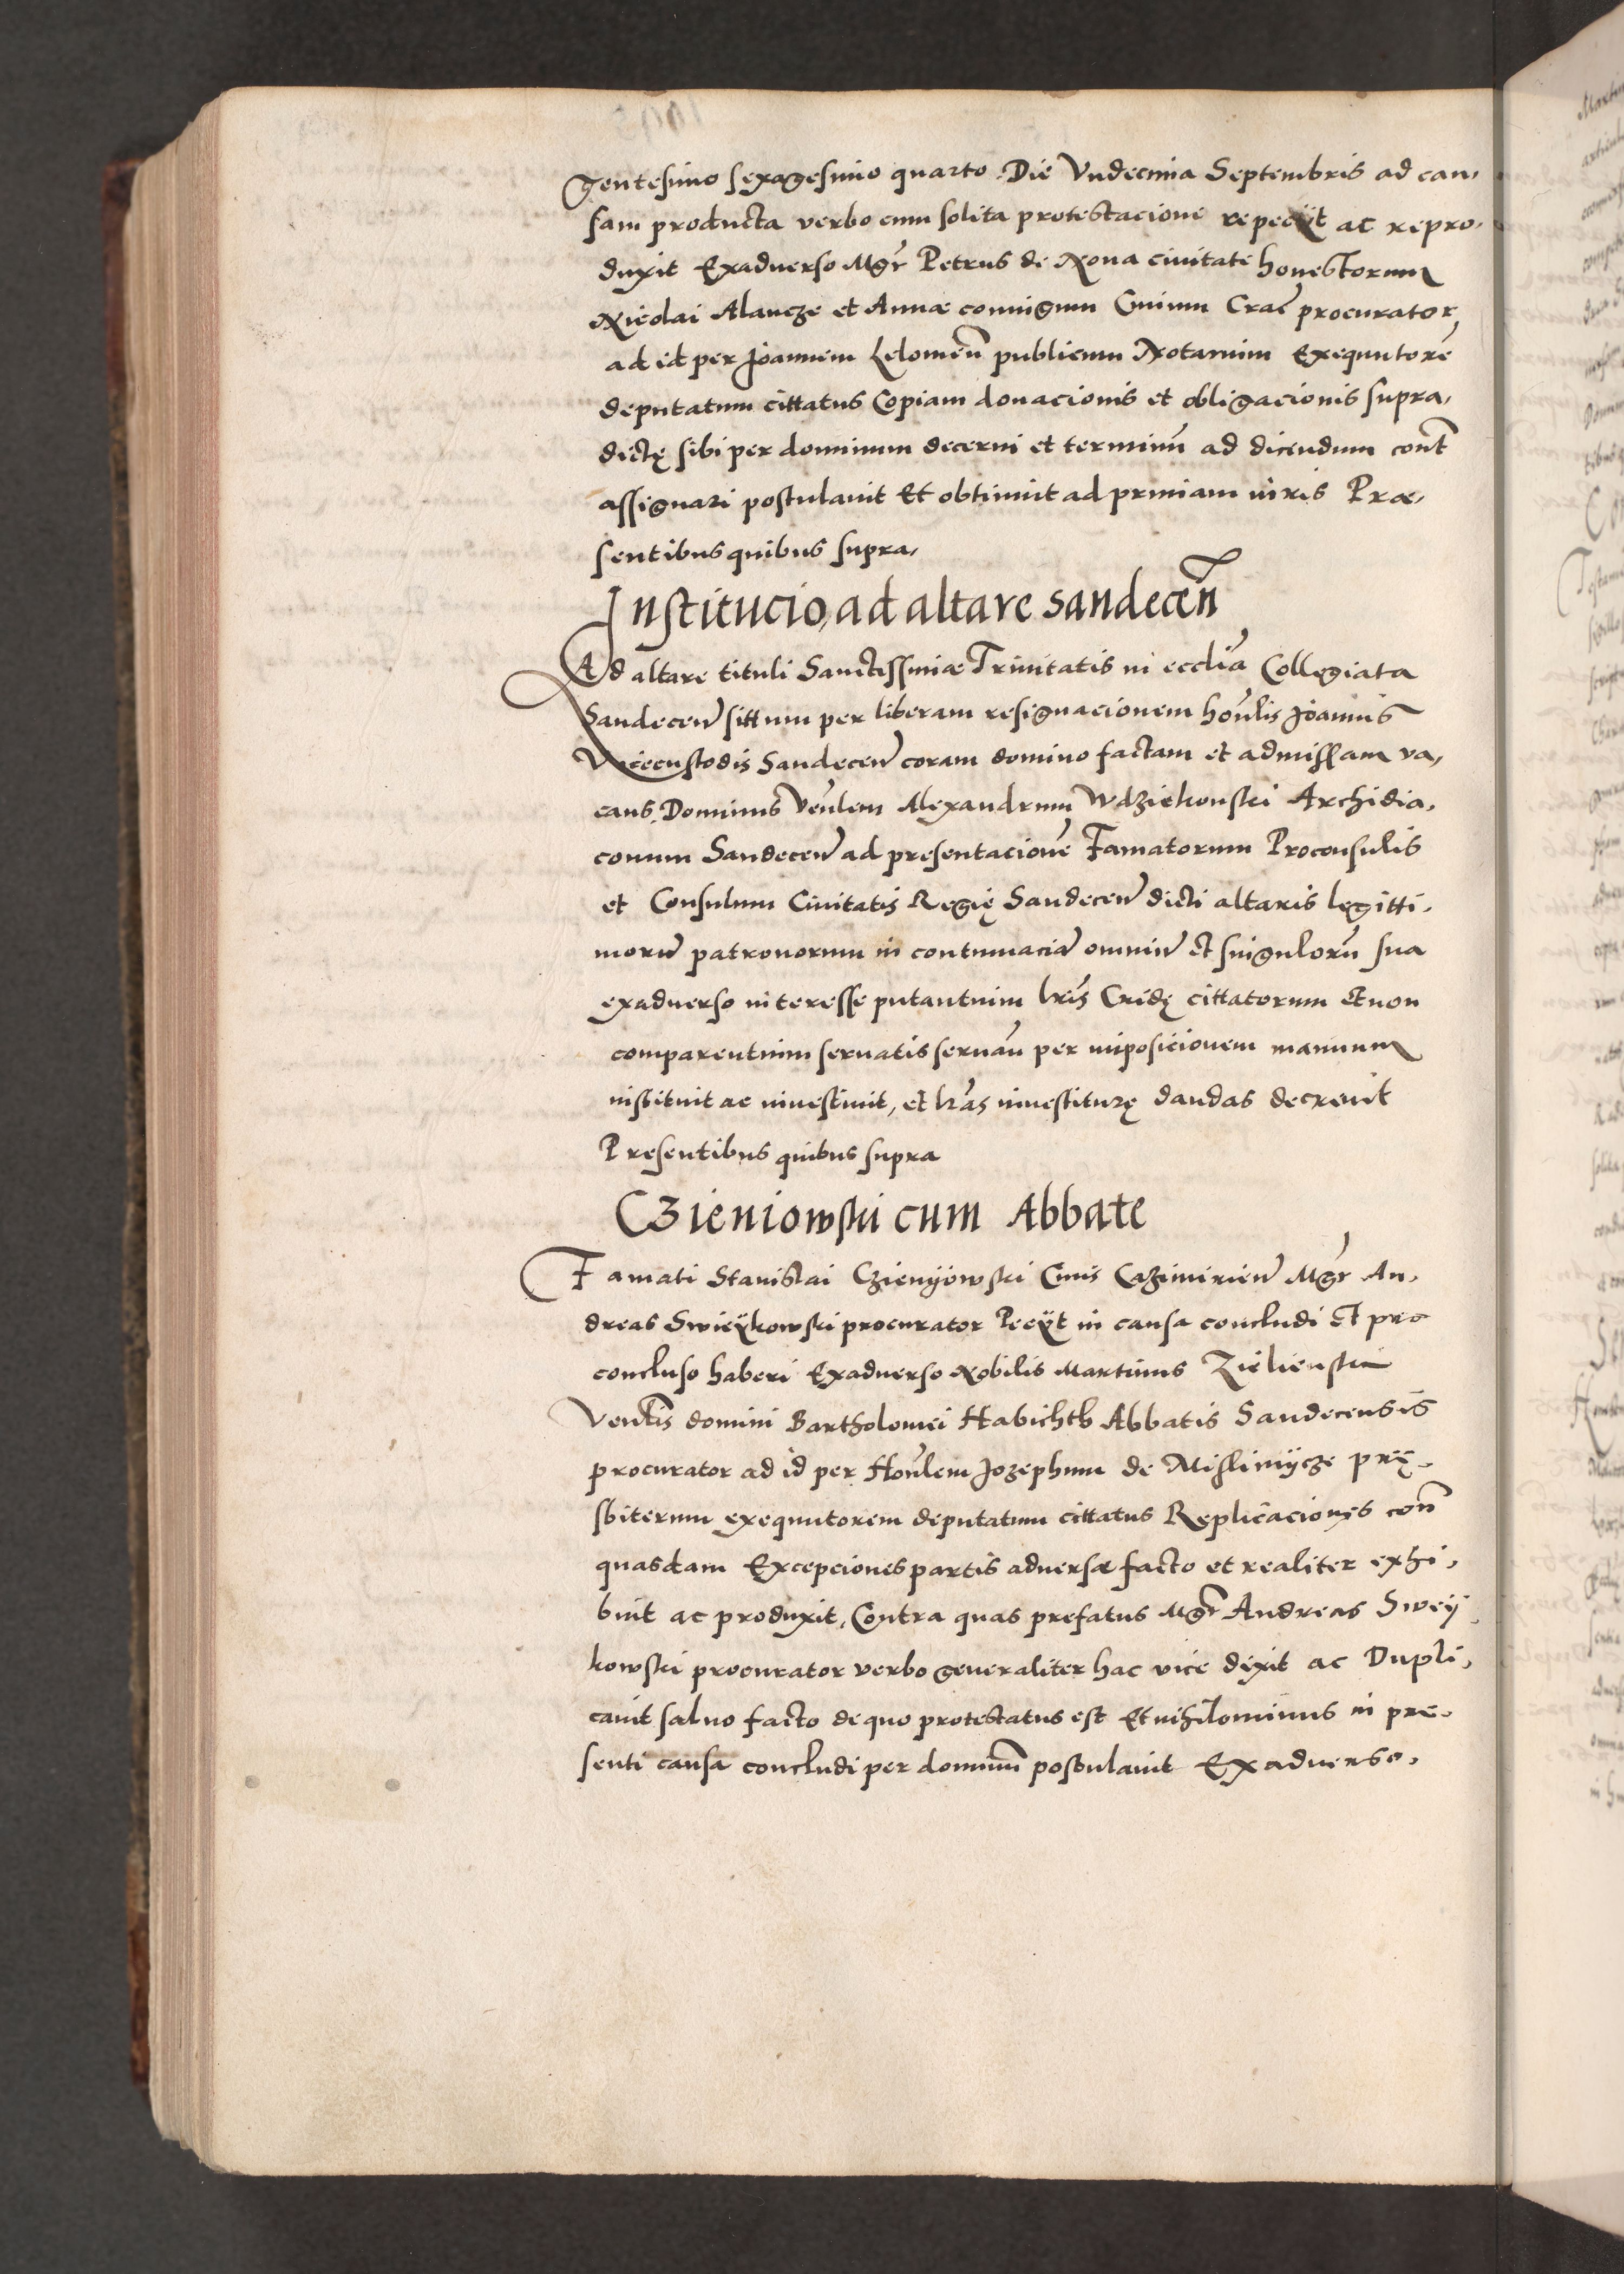 gentesimo sexagesimo quarto. Die Vndecima Septembris ad cau,
sam producta verbo cum solita protestacione repecÿt ac repro,
duxit Exaduerso Mgr̃ Petrus de Noua ciuitate honestorum
Nicolai Alancze et Annæ coniugum Ciuium Crac̃ procurator
ad id per Joannem Lelomen̄ publicum Notarium Exequutorē
deputatum cittatus Copiam donacionis et obligacionis supra,
dictę sibi per dominum decerni et terminū ad dicendum cont̃
assignari postulauit Et obtinuit ad primam iuris Præ,
sentibus quibus supra,
Institucio, ad altare sandecen̄
Ad altare tituli Sanctissimæ Trinitatis in eccľia Collegiata
Sandecen̄ sittum per liberam resignacionem honľis Joannis
Vicecustodis Sandecen̄ coram domino factam et admissam va,
cans. Dominus Venľem Alexandrum Wdziekonski Archidia,
conum Sandecen̄ ad presentacionē Famatorum Proconsulis
et Consulum Ciuitatis Regię Sandecen̄ dicti altaris legitti,
morū patronorum in contumaciā omniū et singulorū sua
exaduerso interesse putantium lr̃is Cridę cittatorum et non
comparentium seruatis seruan̄ per imposicionem manuum
instituit ac inuestiuit, et lr̃as inuestiturę dandas decreuit
Presentibus quibus supra
Czieniowski cum Abbate
Famati Stanislai Czienÿowski Ciuis Cazimirien̄ Mgr̃ An,
dreas Swieÿkowski procurator Pecÿt in causa concludi et pro
concluso haberi Exaduerso Nobilis Martinus Zielienski
Venľis domini Bartholomei Habichth Abbatis Sandecensis
procurator ad id per Honľem Jozephum de Mislimÿcze prę,
sbiterum exequutorem deputatum cittatus Replicaciones con̄
quasdam Excepciones partis aduersæ facto et realiter exhi,
buit ac produxit, Contra quas prefatus Mgr̃ Andreas Sweÿ
kowski procurator verbo generaliter hac vice dixit ac Dupli,
cauit saluo facto de quo protestatus est Et nihilominus in pre,
senti causa concludi per dominū postulauit Exaduerso,